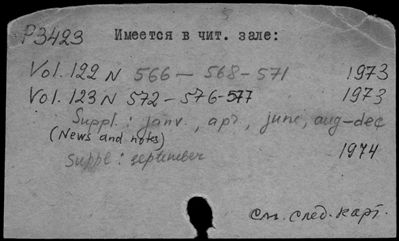 5
P3423 Имеется в чит. зале:
Vol. 122 N 566 – 568-571 1973
Vol. 123 N 572 – 576-577 1973
Suppl.: janv., apr, june, aug-dec
(News and notes)
Suppl: september 1974
См. след. карт.